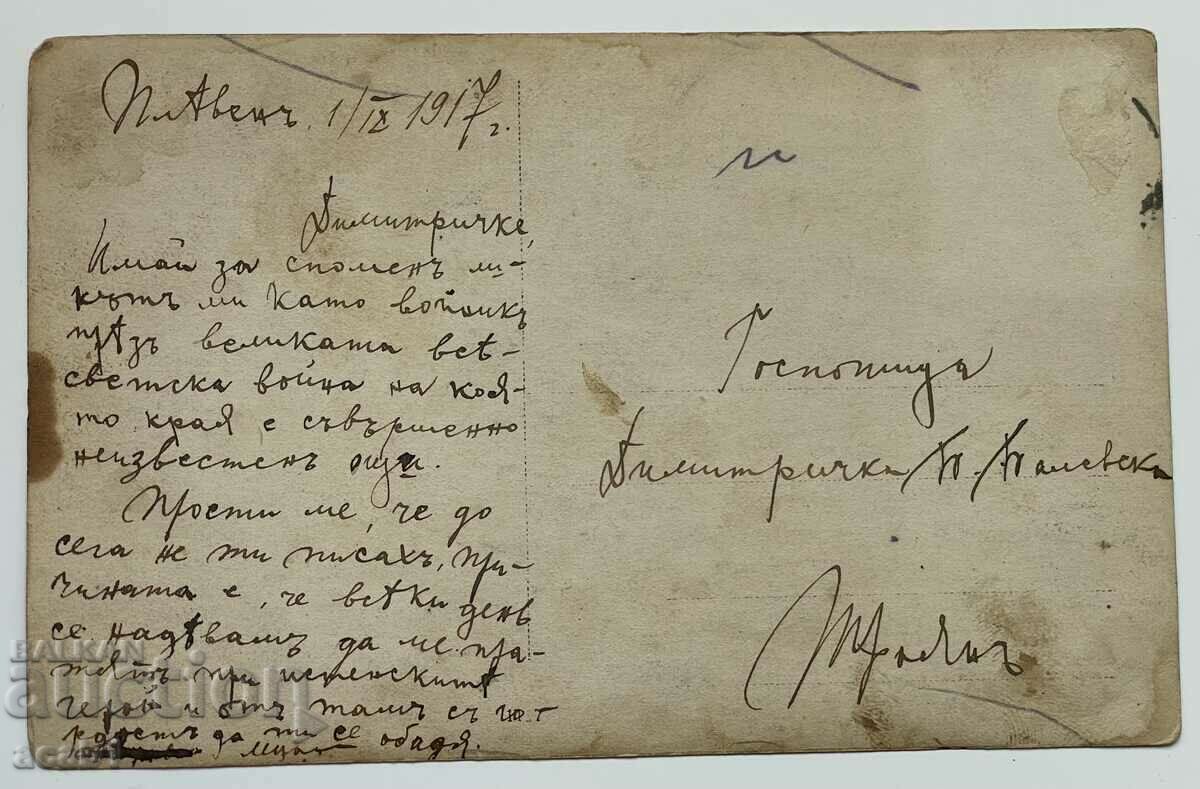 Плѣвенъ. 1/IX 1917 г.
Димитричке,
Имай за споменъ ли-
кътъ ми като войникъ
прѣзъ великата всѣ-
светска война на коя-
то края е съвършенно
неизвестенъ още.
Прости ме, че до
сега не ти писахъ, при-
чината е, че всѣки день
се надѣвамъ да ме пра-
тятъ при истенскитѣ
герои и отъ тамъ съ гор-
дость да ти се обадя.
и
Госпожица
Димитричка П. Палевска
Троянъ
BALKAN
auction